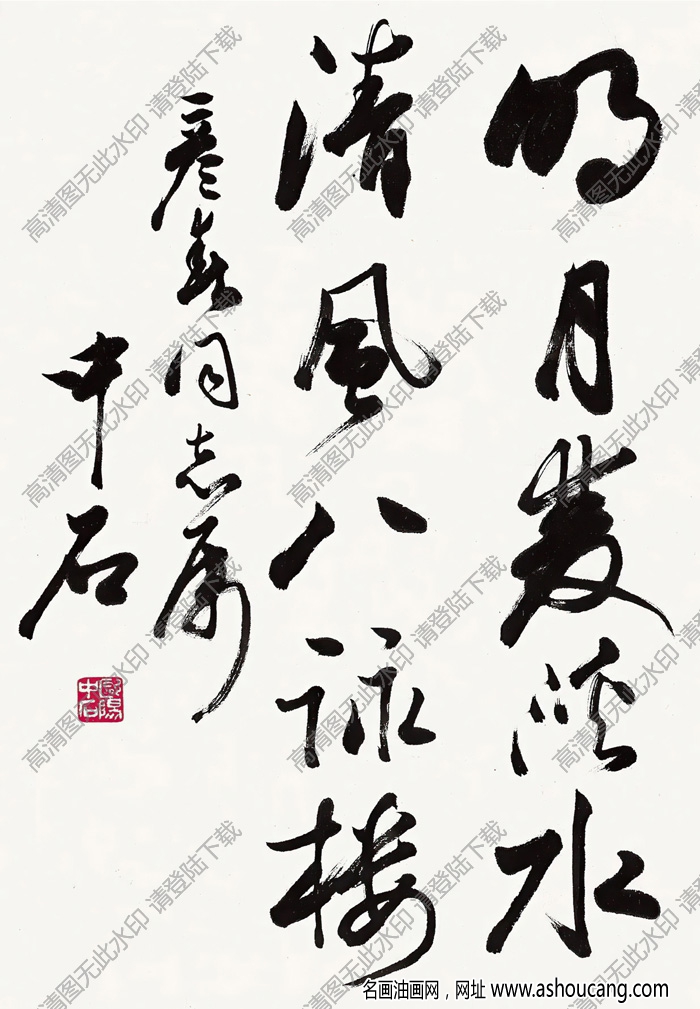 明月雙溪水
清風八詠樓
彦同志属
中石
歐陽中石
高清图无此水印 请登陆下载
名画油画网，网址 www.ashoucang.com